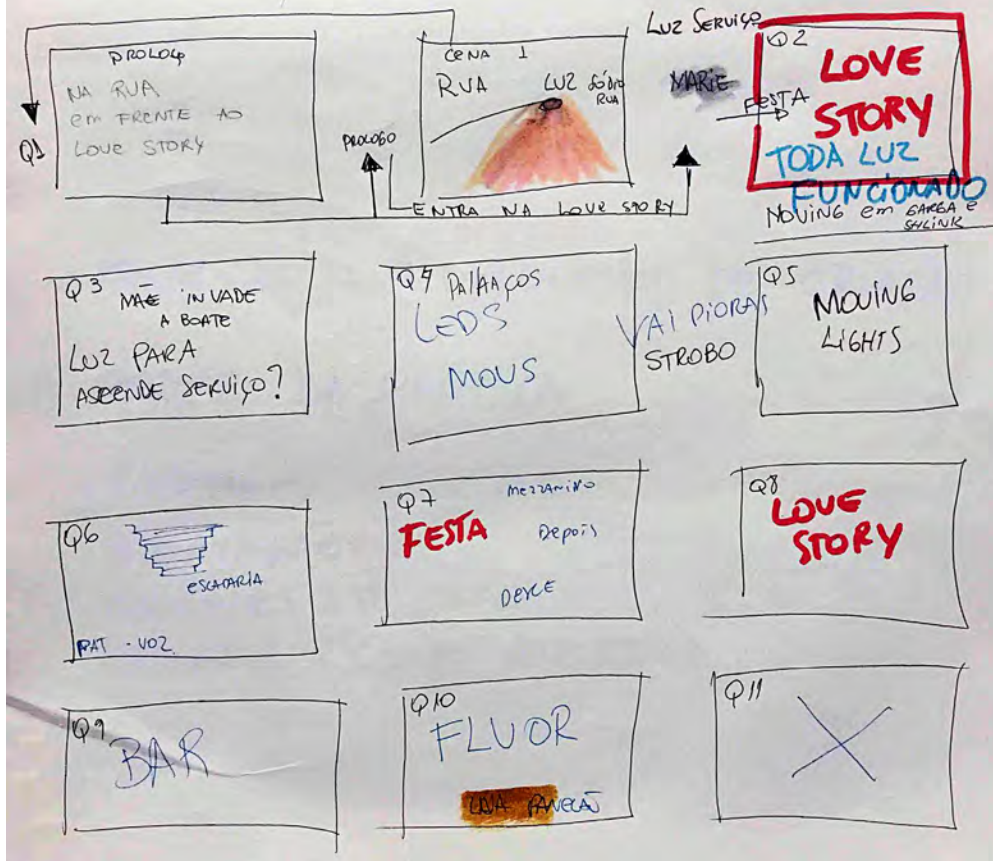 PROLOGO
NA RUA
em FRENTE AO
LOVE STORY
Q1
CENA 1
RUA
LUZ SÓDIO
RUA
PROLOGO
ENTRA NA LOVE STORY
LUZ SERVIÇO
MARIE
FESTA
Q2
LOVE
STORY
TODA LUZ
FUNCIONADO
MOVING em GARBA e
Q3
MÃE INVADE
A BOATE
LUZ PARA
ASCENDE SERVIÇO?
Q4 PALHAÇOS
LEDS
MOVS
VAI PIORAS
STROBO
Q5
MOVING
LIGHTS
Q6
ESCADARIA
PAT - VOZ
Q7
MEZZANINO
FESTA
Depois
DESCE
Q8
LOVE
STORY
Q9
BAR
Q10
FLUOR
PANELAÕ
Q11